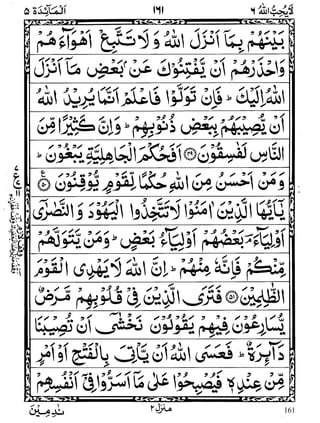 لَا يُحِبُّ اللهُ ٦ ١٦١ اَلْمَآئِدَة ٥
بَيْنَهُمْ بِمَآ اَنْزَلَ اللهُ وَلَا تَتَّبِعْ اَهْوَآءَهُمْ
وَاحْذَرْهُمْ اَنْ يَّفْتِنُوْكَ عَنْۢ بَعْضِ مَآ اَنْزَلَ
اللهُ اِلَيْكَ ؕ فَاِنْ تَوَلَّوْا فَاعْلَمْ اَنَّمَا يُرِيْدُ اللهُ
اَنْ يُّصِيْبَهُمْ بِبَعْضِ ذُنُوْبِهِمْ ؕ وَاِنَّ كَثِيْرًا مِّنَ
النَّاسِ لَفٰسِقُوْنَ ﴿۴۹﴾ اَفَحُكْمَ الْجَاهِلِيَّةِ يَبْغُوْنَ ؕ
وَمَنْ اَحْسَنُ مِنَ اللهِ حُكْمًا لِّقَوْمٍ يُّوْقِنُوْنَ ﴿۵۰﴾
يٰٓاَيُّهَا الَّذِيْنَ اٰمَنُوْا لَا تَتَّخِذُوا الْيَهُوْدَ وَالنَّصٰرٰٓى
اَوْلِيَآءَ ۘ بَعْضُهُمْ اَوْلِيَآءُ بَعْضٍ ؕ وَمَنْ يَّتَوَلَّهُمْ
مِّنْكُمْ فَاِنَّهٗ مِنْهُمْ ؕ اِنَّ اللهَ لَا يَهْدِى الْقَوْمَ
الظّٰلِمِيْنَ ﴿۵۱﴾ فَتَرَى الَّذِيْنَ فِىْ قُلُوْبِهِمْ مَّرَضٌ
يُّسَارِعُوْنَ فِيْهِمْ يَقُوْلُوْنَ نَخْشٰٓى اَنْ تُصِيْبَنَا
دَآئِرَةٌ ؕ فَعَسَى اللهُ اَنْ يَّاْتِىَ بِالْفَتْحِ اَوْ اَمْرٍ
مِّنْ عِنْدِهٖ فَيُصْبِحُوْا عَلٰى مَآ اَسَرُّوْا فِىْٓ اَنْفُسِهِمْ
نٰدِمِيْنَ منزل ٢ 161